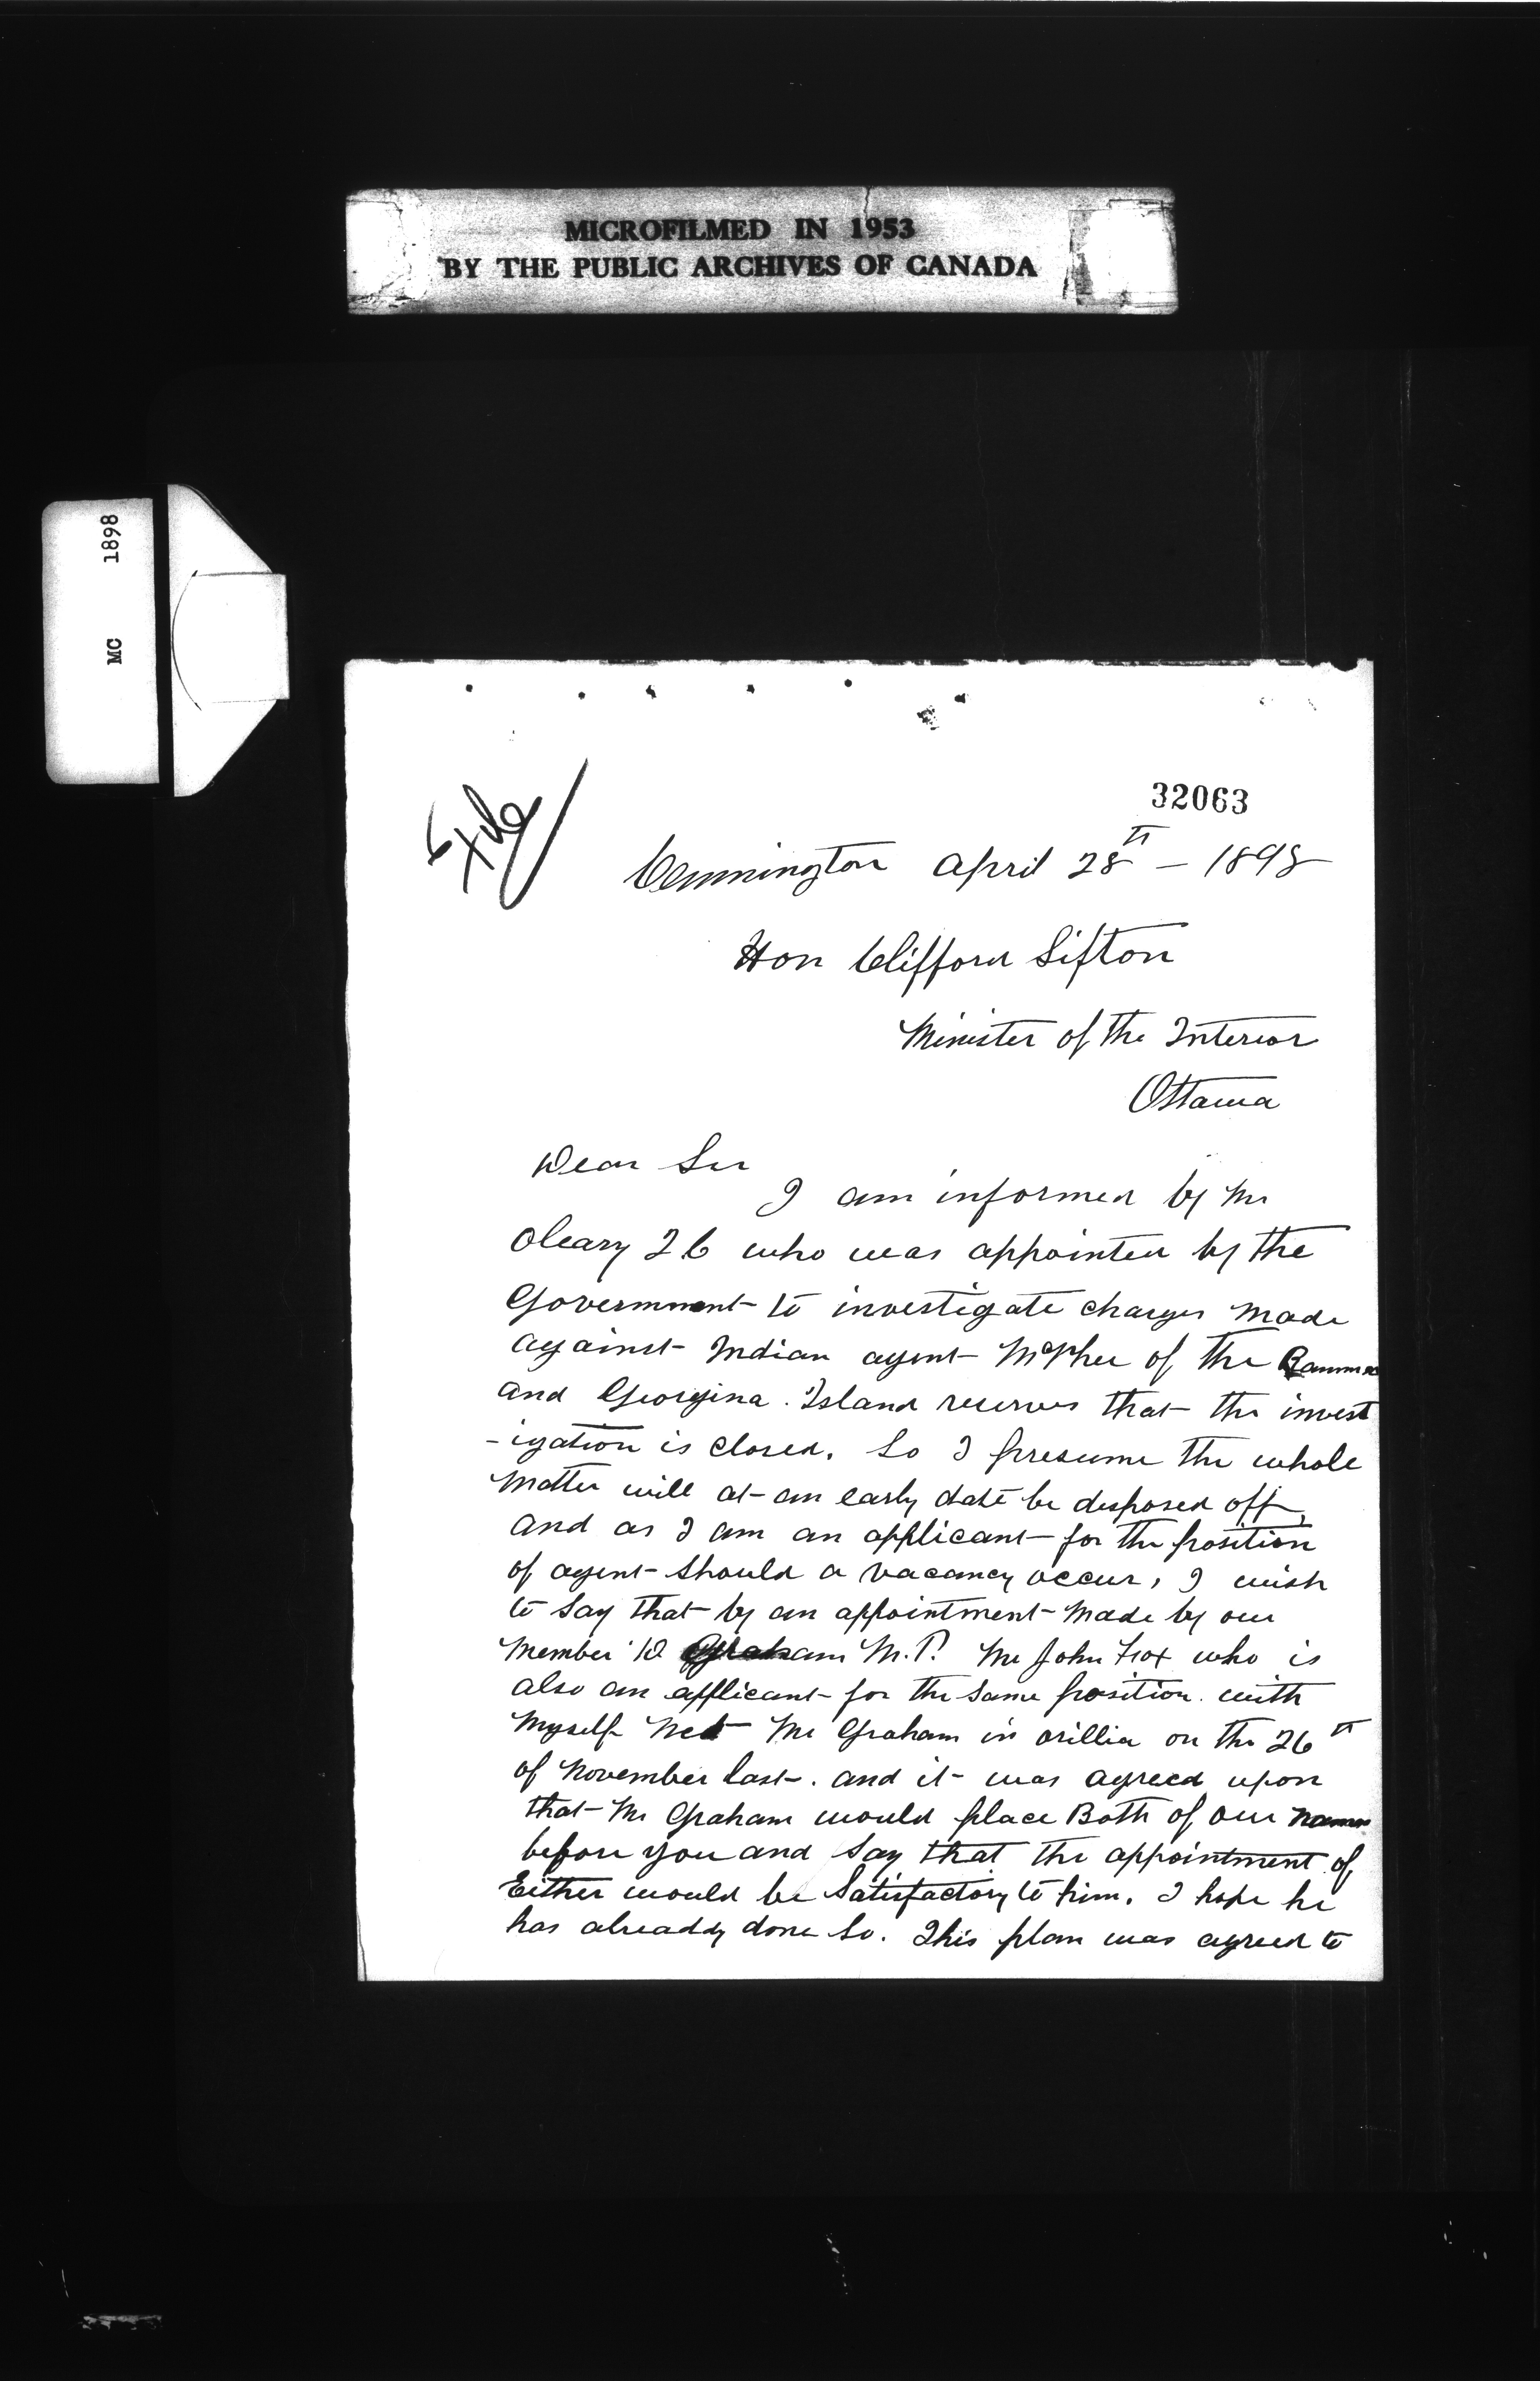 MICROFILMED IN 1953
BY THE PUBLIC ARCHIVES OF CANADA
MC 1898
File
32063
Cannington April 28th - 1898
Hon Clifford Sifton
Minister of the Interior
Ottawa
Dear Sir
I am informed by Mr
Oleary Q C who was appointed by the
Government to investigate charges made
against Indian agent McPhee of the Ramma
and Georgina Island reserves that the invest
-igation is closed. So I presume the whole
matter will at an early date be disposed off,
and as I am an applicant for the position
of agent should a vacancy occur, I wish
to say that by an appointment made by our
member D Graham M.P. Mr John Fox who is
also an applicant for the same position with
myself Met Mr Graham in orillia on the 26th
of November last. and it was agreed upon
that Mr Graham would place Both of our names
before you and say that the appointment of
Either would be satisfactory to him. I hope he
has already done so. This plan was agreed to